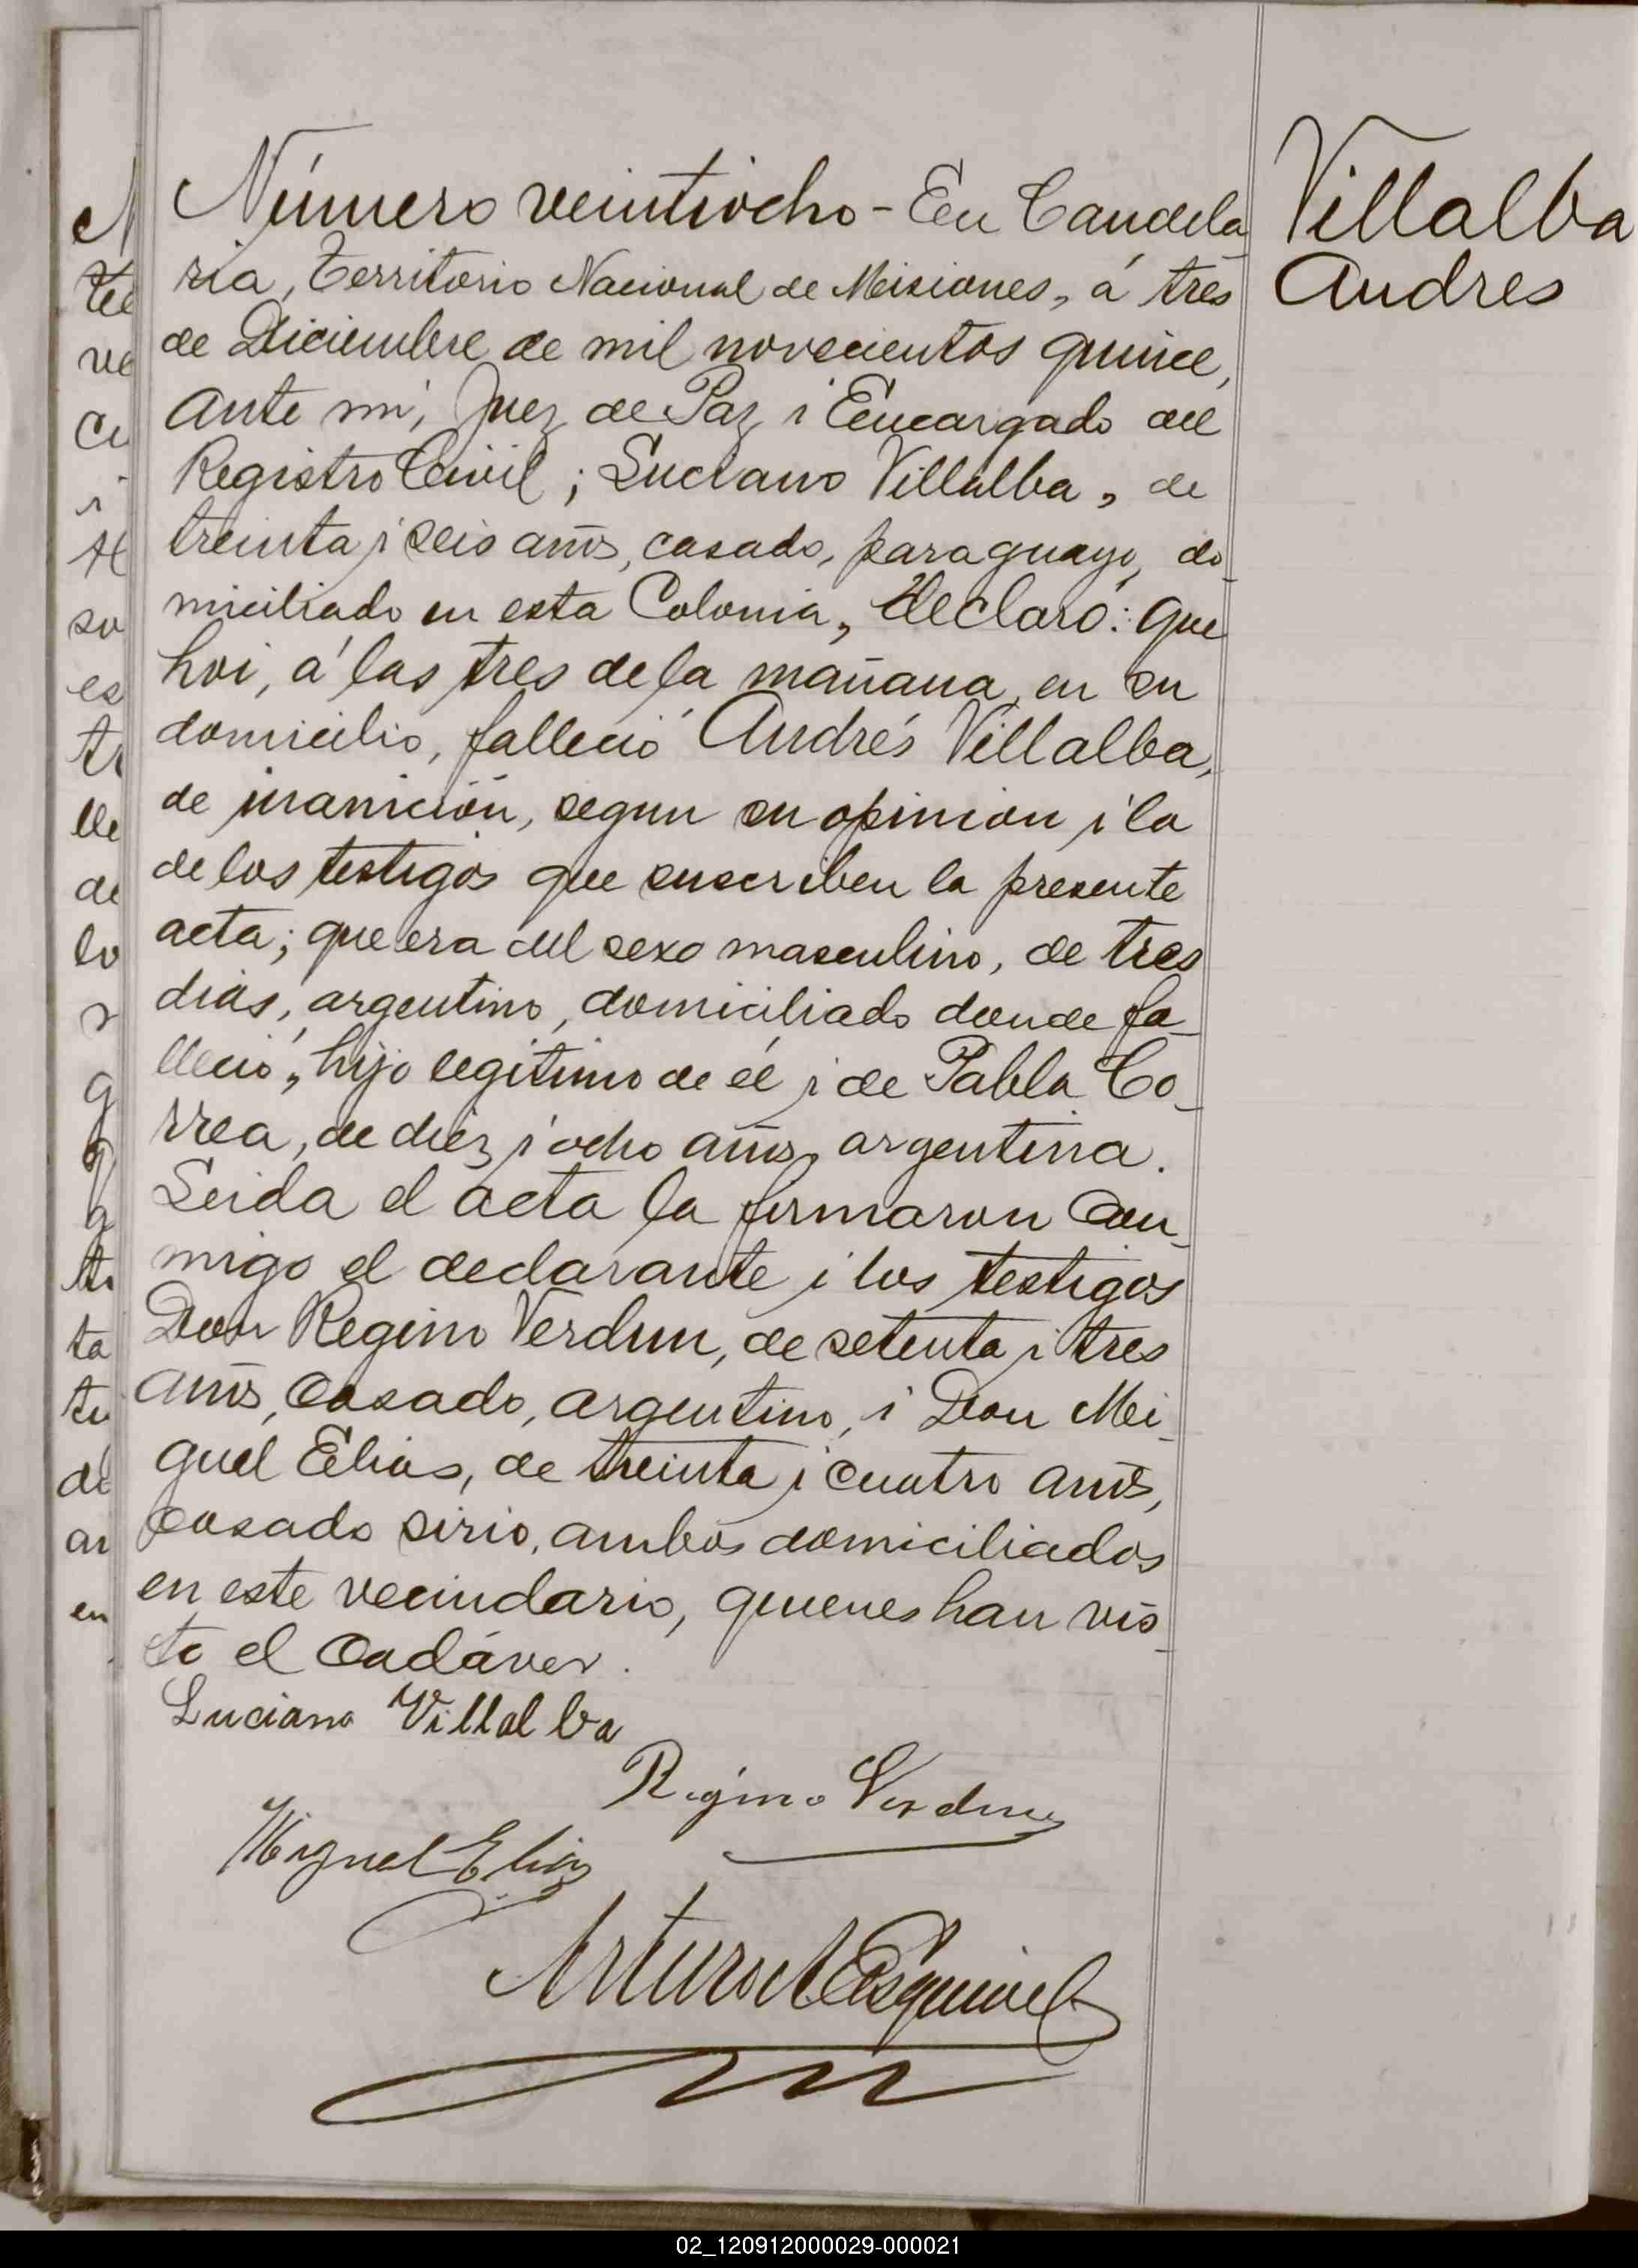 Número veintiocho - En Candela
ria, Territorio Nacional de Misiones, á tres
de Diciembre de mil novecientos quince,
ante mi, Juez de Paz i Encargado del
Registro Civil; Luciano Villalba, de
treinta i seis años, casado, paraguayo, do_
miciliado en esta Colonia, declaró: que
hoi, á las tres de la mañana, en su
domicilio, falleció Andrés Villalba,
de inanición, segun su opinion i la
de los testigos que suscriben la presente
acta; que era del sexo masculino, de tres
dias, argentino, domiciliado donde fa_
lleció, hijo legítimo de él i de Pabla Co_
rrea, de diez i ocho años, argentina.
Leida el acta la firmaron con_
migo el declarante i los testigos
Don Regino Verdun, de setenta i tres
años, casado, argentino, i Don Mi_
guel Elias, de treinta i cuatro años,
casado sirio, ambos domiciliados
en este vecindario, quienes han vis_
to el cadáver.
Luciano Villalba
Regino Verdun
Miguel Elias
Arturo A Esquivel
Villalba
Andres
02_120912000029-000021